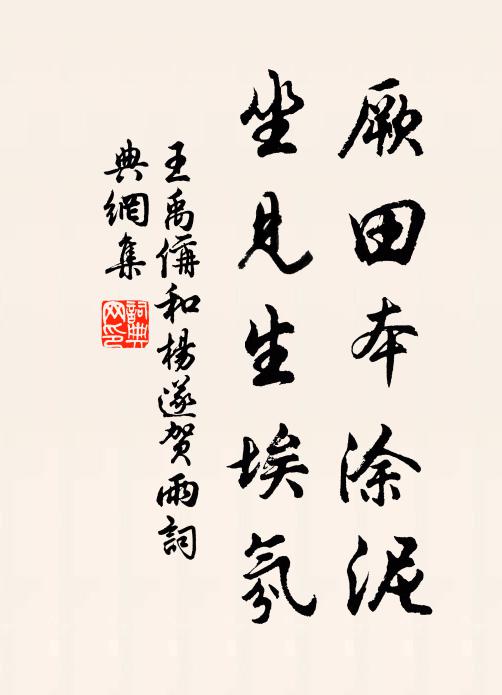 厥田本涂泥
坐見生埃氛
王禹偁和楊遂贺雨詞
典網集
詞典
网印